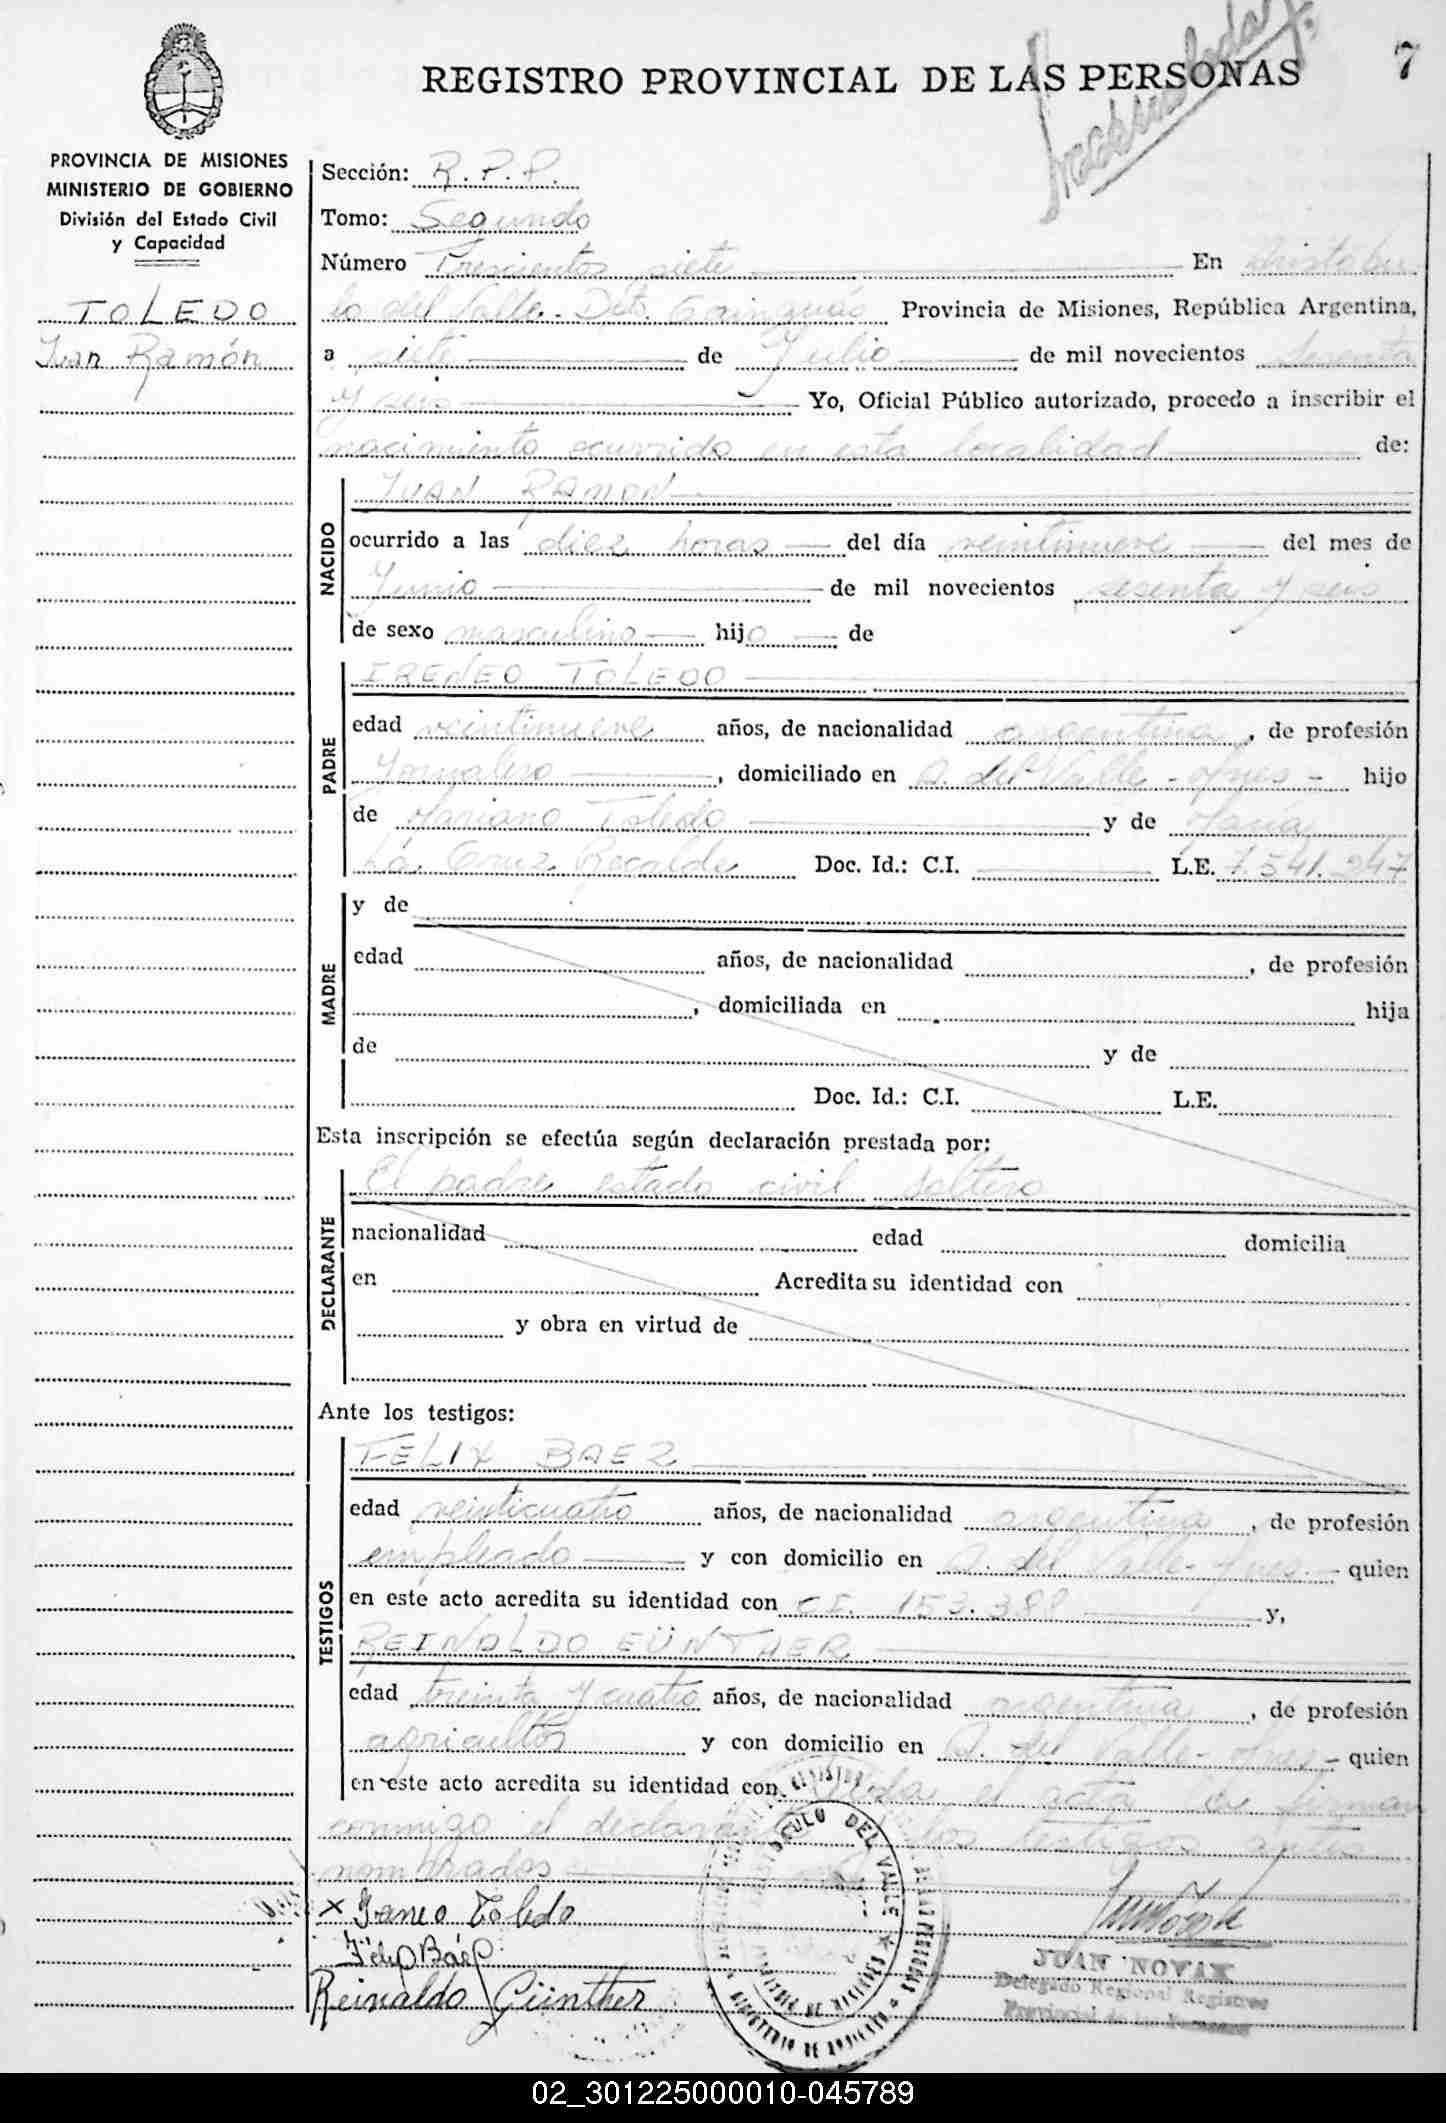 REGISTRO PROVINCIAL DE LAS PERSONAS
7
PROVINCIA DE MISIONES
MINISTERIO DE GOBIERNO
División del Estado Civil
y Capacidad
TOLEDO
Juan Ramón
Sección: R.P.P.
Tomo: Segundo
Número Trescientos siete En Aristóbu
lo del Valle. Dto. Cainguás Provincia de Misiones, República Argentina,
a siete de Julio de mil novecientos sesenta
y seis Yo, Oficial Público autorizado, procedo a inscribir el
nacimiento ocurrido en esta localidad de:
NACIDO
JUAN RAMON
ocurrido a las diez horas del día veintinueve del mes de
Junio de mil novecientos sesenta y seis
de sexo masculino hijo de
PADRE
IRENEO TOLEDO
edad veintinueve años, de nacionalidad argentina, de profesión
Jornalero, domiciliado en A. del Valle - Mnes - hijo
de Mariano Toledo y de María
La Cruz Recalde Doc. Id.: C.I. L.E. 7.541.247
MADRE
y de
edad años, de nacionalidad , de profesión
, domiciliada en hija
de y de
Doc. Id.: C.I. L.E.
Esta inscripción se efectúa según declaración prestada por:
DECLARANTE
El padre estado civil soltero
nacionalidad edad domicilia
en Acredita su identidad con
y obra en virtud de
Ante los testigos:
TESTIGOS
FELIX BAEZ
edad veinticuatro años, de nacionalidad argentina, de profesión
empleado y con domicilio en A. del Valle - Mnes. - quien
en este acto acredita su identidad con C.I. 153.388 y,
REINALDO GÜNTHER
edad treinta y cuatro años, de nacionalidad argentina, de profesión
agricultor y con domicilio en A. del Valle - Mnes - quien
en este acto acredita su identidad con el acta la firman
conmigo el declarante los testigos antes
nombrados
x Ireneo Toledo
Félix Báez
Reinaldo Günther
DEL VALLE
JUAN NOVAK
Delegado Regional Registro
Provincial de las Personas
02_301225000010-045789